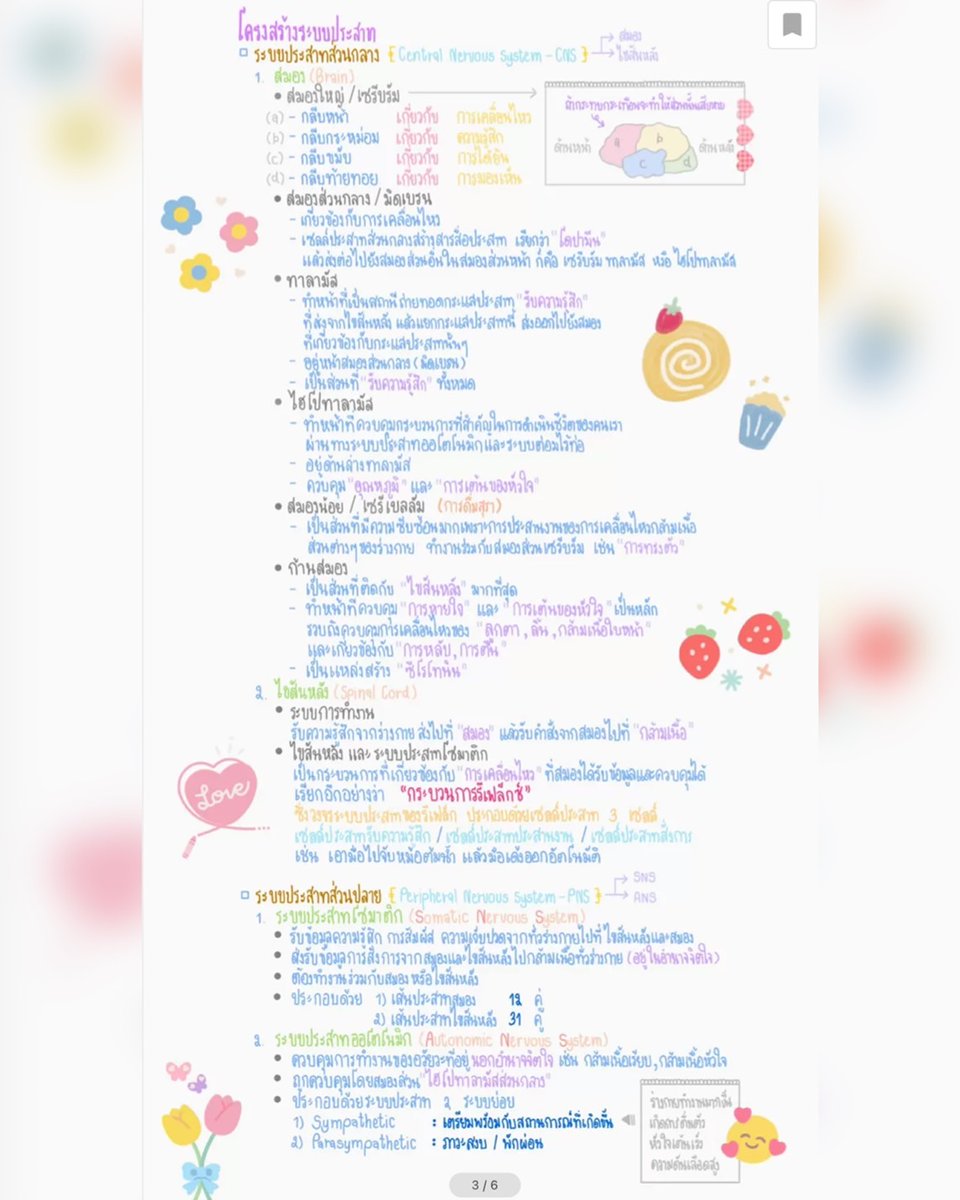 โครงสร้างระบบประสาท
ระบบประสาทส่วนกลาง { Central Nervous System - CNS } สมอง
ไขสันหลัง
1. สมอง (Brain)
• สมองใหญ่ / เซรีบรัม
(a) - กลีบหน้า เกี่ยวกับ การเคลื่อนไหว
(b) - กลีบกระหม่อม เกี่ยวกับ ความรู้สึก
(c) - กลีบขมับ เกี่ยวกับ การได้ยิน
(d) - กลีบท้ายทอย เกี่ยวกับ การมองเห็น
ถ้ากระทบกระเทือนจะทำให้ส่วนนั้นเสียหาย
ด้านหน้า a b c d ด้านหลัง
• สมองส่วนกลาง / มิดเบรน
- เกี่ยวข้องกับการเคลื่อนไหว
- เซลล์ประสาทส่วนกลางสร้างสารสื่อประสาท เรียกว่า "โดปามีน"
แล้วส่งต่อไปยังสมองส่วนอื่นในสมองส่วนหน้า ก็คือ เซรีบรัม ทาลามัส หรือ ไฮโปทาลามัส
• ทาลามัส
- ทำหน้าที่เป็นสถานีถ่ายทอดกระแสประสาท "รับความรู้สึก"
ที่ส่งจากไขสันหลัง แล้วแยกกระแสประสาทนี้ ส่งออกไปยังสมอง
ที่เกี่ยวข้องกับกระแสประสาทนั้นๆ
- อยู่หน้าสมองส่วนกลาง (มิดเบรน)
- เป็นส่วนที่ "รับความรู้สึก" ทั้งหมด
• ไฮโปทาลามัส
- ทำหน้าที่ควบคุมกระบวนการที่สำคัญในการดำเนินชีวิตของคนเรา
ผ่านทางระบบประสาทออโตโนมิกและระบบต่อมไร้ท่อ
- อยู่ด้านล่างทาลามัส
- ควบคุม "อุณหภูมิ" และ "การเต้นของหัวใจ"
• สมองน้อย / เซรีเบลลัม (การดื่มสุรา)
- เป็นส่วนที่มีความซับซ้อนมากเพราะการประสานงานของการเคลื่อนไหวกล้ามเนื้อ
ส่วนต่างๆของร่างกาย ทำงานร่วมกับสมองส่วนเซรีบรัม เช่น "การทรงตัว"
• ก้านสมอง
- เป็นส่วนที่ติดกับ "ไขสันหลัง" มากที่สุด
- ทำหน้าที่ควบคุม "การหายใจ" และ "การเต้นของหัวใจ" เป็นหลัก
รวมถึงควบคุมการเคลื่อนไหวของ "ลูกตา , ลิ้น , กล้ามเนื้อใบหน้า"
และเกี่ยวข้องกับ "การหลับ, การตื่น"
- เป็นแหล่งสร้าง "ซีโรโทนิน"
2. ไขสันหลัง (Spinal Cord)
• ระบบการทำงาน
รับความรู้สึกจากร่างกาย ส่งไปที่ "สมอง" แล้วรับคำสั่งจากสมองไปที่ "กล้ามเนื้อ"
• ไขสันหลัง และ ระบบประสาทโซมาติก
เป็นกระบวนการที่เกี่ยวข้องกับ "การเคลื่อนไหว" ที่สมองได้รับข้อมูลและควบคุมได้
เรียกอีกอย่างว่า "กระบวนการรีเฟล็กซ์"
ซึ่งวงจรระบบประสาทของรีเฟล็ก ประกอบด้วยเซลล์ประสาท 3 เซลล์
เซลล์ประสาทรับความรู้สึก / เซลล์ประสาทประสานงาน / เซลล์ประสาทสั่งการ
เช่น เอามือไปจับหม้อต้มน้ำ แล้วมือเด้งออกอัตโนมัติ
Love
ระบบประสาทส่วนปลาย { Peripheral Nervous System - PNS } SNS
ANS
1. ระบบประสาทโซมาติก (Somatic Nervous System)
• รับข้อมูลความรู้สึก การสัมผัส ความเจ็บปวดจากทั่วร่างกายไปที่ไขสันหลังและสมอง
• ส่งรับข้อมูลการสั่งการจากสมองและไขสันหลังไปกล้ามเนื้อทั่วร่างกาย (อยู่ในอำนาจจิตใจ)
• ต้องทำงานร่วมกับสมองหรือไขสันหลัง
• ประกอบด้วย 1) เส้นประสาทสมอง 12 คู่
2) เส้นประสาทไขสันหลัง 31 คู่
2. ระบบประสาทออโตโนมิก (Autonomic Nervous System)
• ควบคุมการทำงานของอวัยวะที่อยู่นอกอำนาจจิตใจ เช่น กล้ามเนื้อเรียบ, กล้ามเนื้อหัวใจ
• ถูกควบคุมโดยสมองส่วน "ไฮโปทาลามัสส่วนกลาง"
• ประกอบด้วยระบบประสาท 2 ระบบย่อย
1) Sympathetic : เตรียมพร้อมกับสถานการณ์ที่เกิดขึ้น
2) Parasympathetic : ภาวะสงบ / พักผ่อน
ร่างกายทำงานมากขึ้น
เกิดการตื่นตัว
หัวใจเต้นเร็ว
ความดันเลือดสูง
3 / 6